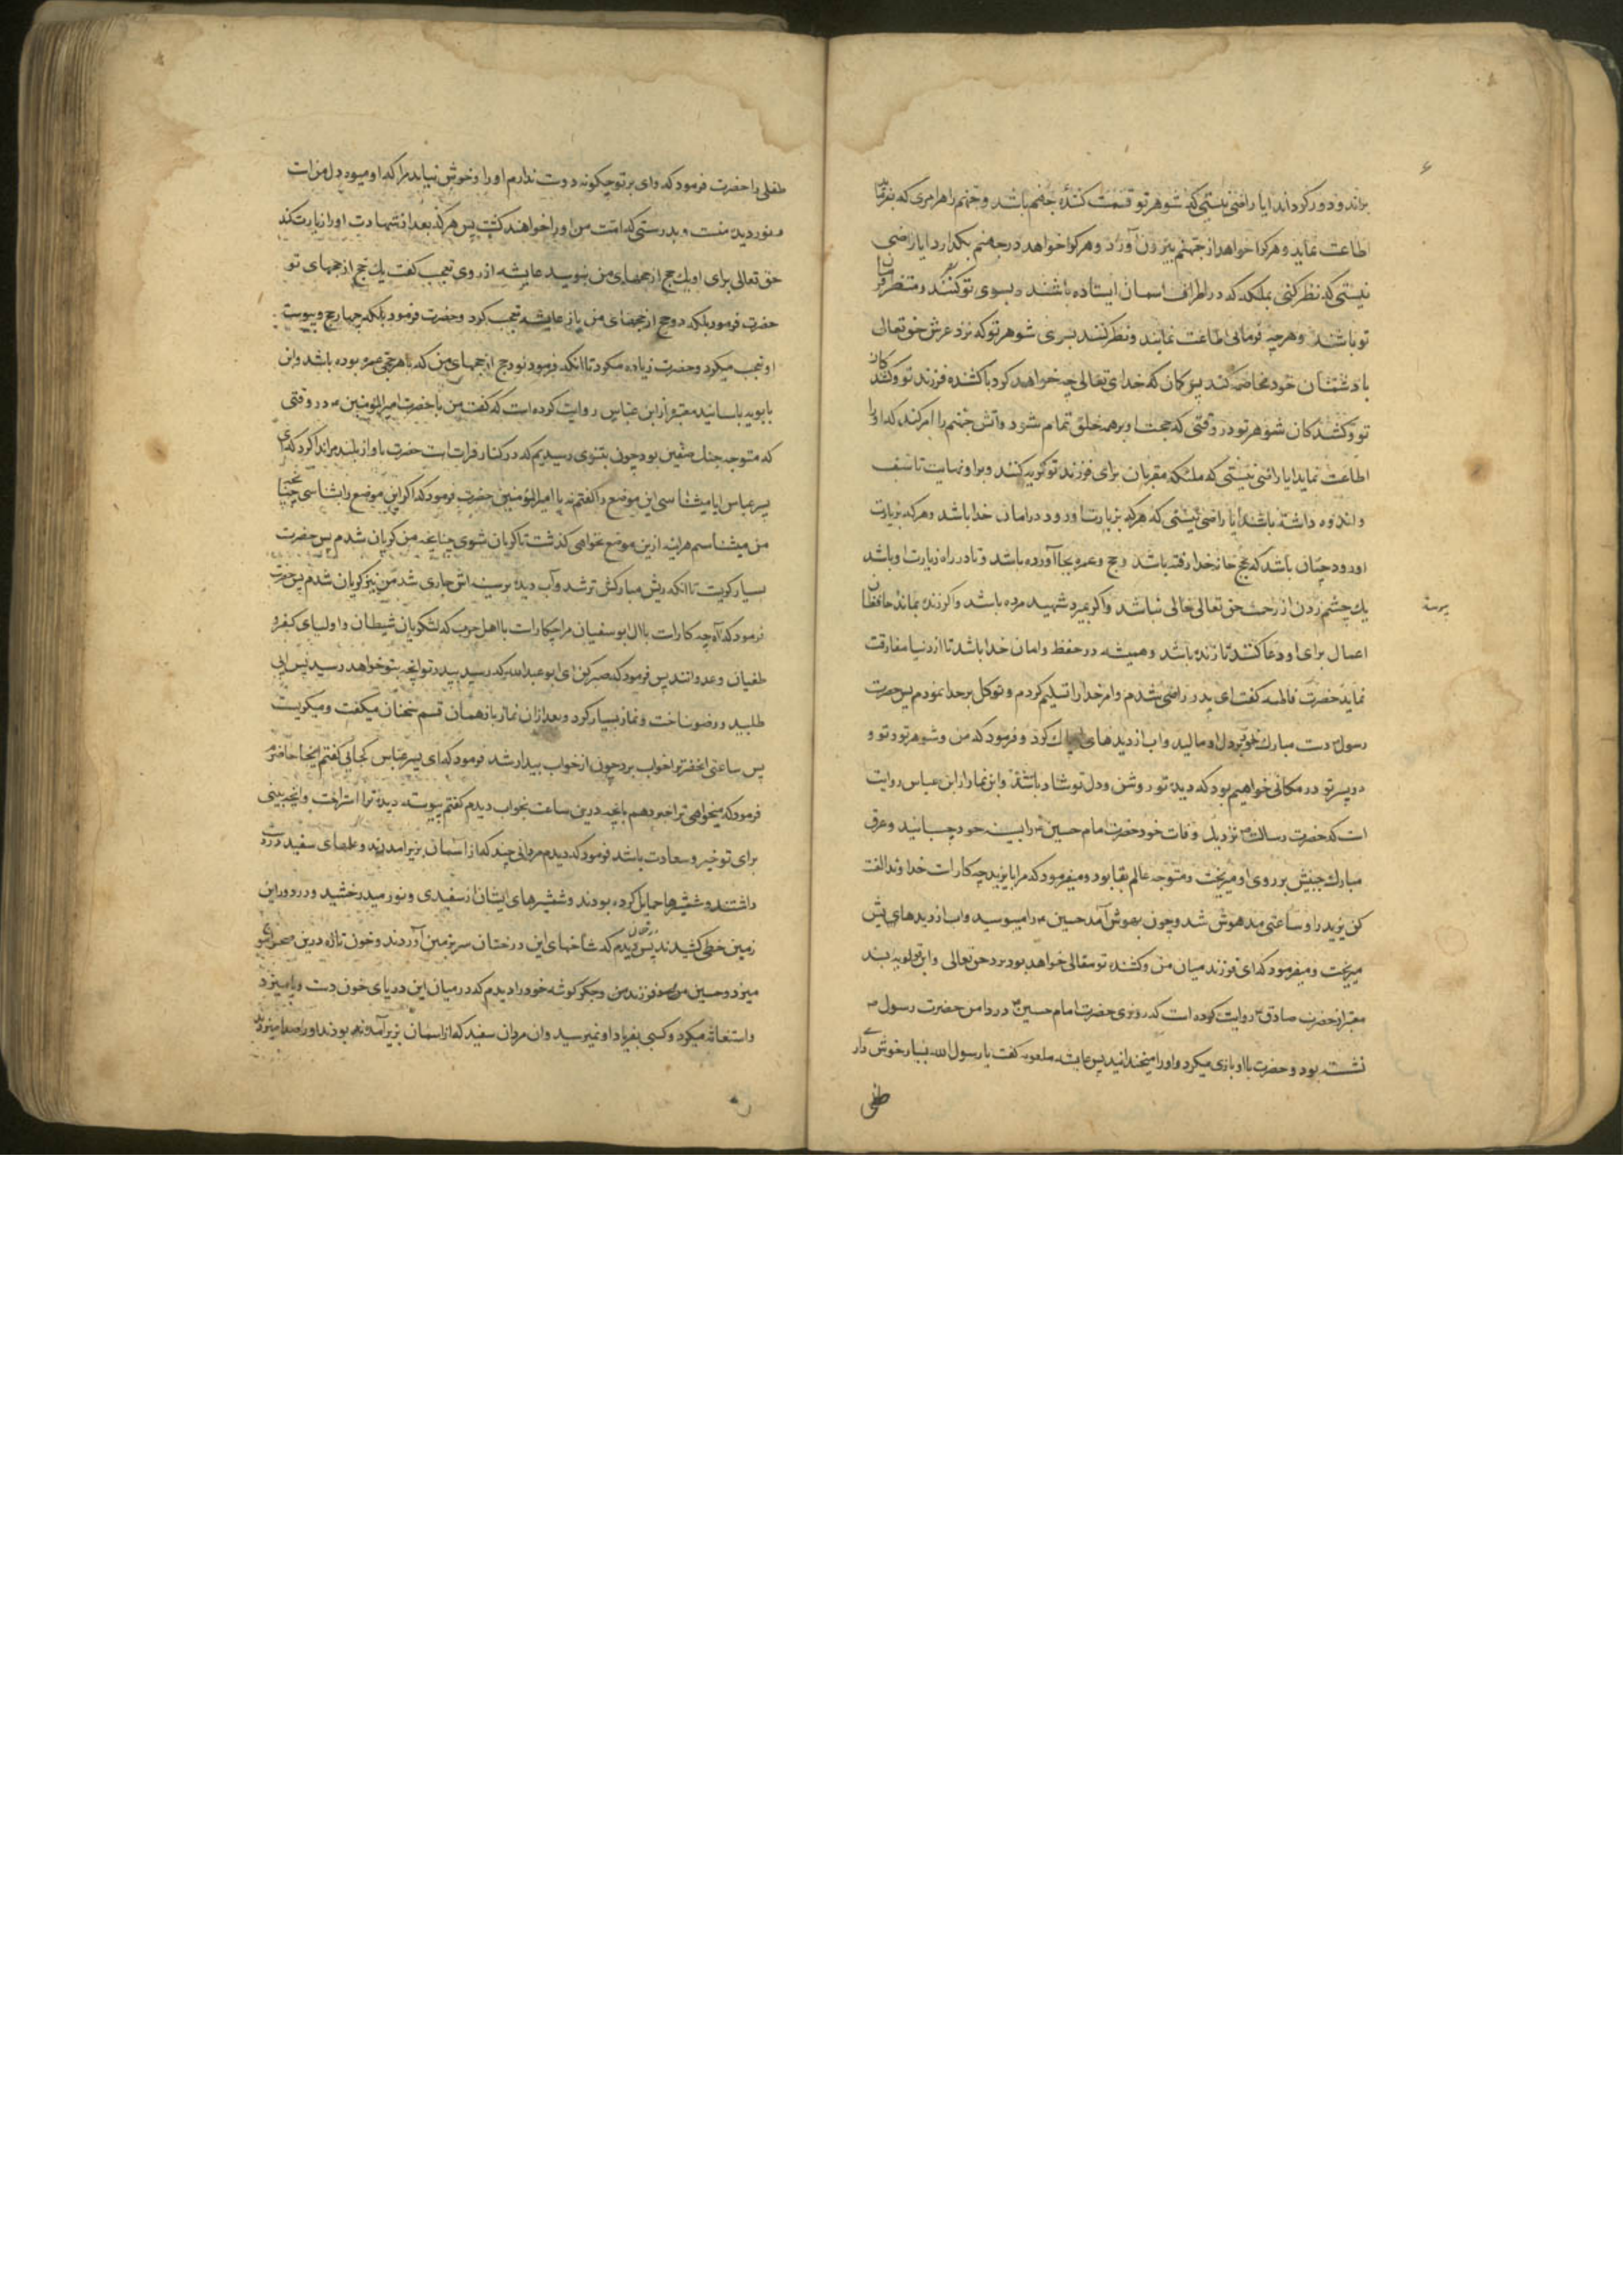 براند و دور کرداند ایا راضی نیستی که شوهر تو قسمت کنندهٔ جهنم باشد و جهنم را هر امری که بفرماید
اطاعت نماید و هر کرا خواهد از جهنم بیرون آورد و هر کرا خواهد در جهنم بکذارد ایا راضی
نیستی که نظر کنی بملئکه که در اطراف اسمان ایستاده باشند و بسوی تو نظر کنند و منتظر فرمان
تو باشند و هر چه فرمائی اطاعت نمایند و نظر کنند بسوی شوهر تو که نزد عرش حق تعالی
با دشمنان خود مخاصمه کند پس کمان که خدای تعالی چه خواهد کرد با کشنده فرزند تو و کشندکان
تو و کشندکان شوهر تو در وقتی که حجت او بر همه خلق تمام شود و اتش جهنم را امر کند که او را
اطاعت نماید ایا راضی نیستی که ملئکه مقربان برای فرزند تو کریه کنند و بر او نهایت تاسف
و اندوه داشته باشند ایا راضی نیستی که هر که بزیارت او رود در امان خدا باشد و هر که بزیارت
او رود چنان باشد که بحج خانه خدا رفته باشد و حج و عمره بجا آورده باشد و تا در راه زیارت او باشد
یک چشم زدن از رحمت حق تعالی خالی نباشد و اکر بمیرد شهید مرده باشد و اکر زنده بماند حافظان
اعمال برای او دعا کنند تا زنده باشد و همیشه در حفظ و امان خدا باشد تا از دنیا مفارقت
نماید حضرت فاطمه کفت ای پدر راضی شدم و امر خدا را تسلیم کردم و توکل بر خدا نمودم پس حضرت
رسول ص دست مبارک خود بر دل او مالید و اب از دیدهای او پاک کرد و فرمود که من و شوهر تو و تو و
دو پسر تو در مکانی خواهیم بود که دیدهٔ تو روشن و دل تو شاد باشد و ابن نما از ابن عباس روایت
است که حضرت رسالت ص نزدیک وفات خود حضرت امام حسین ع را بسینه خود چسبانید و عرق
مبارک جبینش بر روی او میریخت و متوجه عالم بقا بود و میفرمود که مرا با یزید چه کار است خداوندا لعنت
کن یزید را و ساعتی مدهوش شد و چون بهوش آمد حسین ع را میبوسید و اب از دیدهای یش
میریخت و میفرمود که ای فرزند میان من و کشنده تو مقالی خواهد بود نزد حق تعالی و ابن قولویه بسند
معتبر از حضرت صادق ع روایت کرده است که روزی حضرت امام حسین ع در دامن حضرت رسول ص
نشسته بود و حضرت با او بازی میکرد و او را میخندانید پس عایشه ملعونه کفت یا رسول الله بسیار خوش دار
طفلی
طفلی را حضرت فرمود که وای بر تو چکونه دوست ندارم او را و خوش نیاید مرا که او میوه دل من است
و نور دیده منست و بدرستی که امت من او را خواهند کشت پس هر که بعد از شهادت او را زیارت کند
حق تعالی برای او یک حج از حجهای من بنویسد عایشه از روی تعجب کفت یک حج از حجهای تو
حضرت فرمود بلکه دو حج از حجهای من باز عایشه تعجب کرد و حضرت فرمود بلکه چهار حج و پیوسته
او تعجب میکرد و حضرت زیاده میکرد تا انکه فرمود نود حج از حجهای من که با هر حجی عمره بوده باشد و ابن
بابویه باسانید معتبر از ابن عباس روایت کرده است که کفت من با حضرت امیر المؤمنین ع در وقتی
که متوجه جنک صفین بود چون بنینوی رسیدیم که در کنار فرات است حضرت باواز بلند مرا ندا کرد که ای
پسر عباس ایا میشناسی این موضع را کفتم نه یا امیر المؤمنین حضرت فرمود که اکر این موضع را بشناسی چنانچه
من میشناسم هراینه ازین موضع نخواهی کذشت تا کریان شوی چنانچه من کریان شدم پس حضرت
بسیار کریست تا انکه ریش مبارکش تر شد و آب دیده بر سینه اش جاری شد من نیز کریان شدم پس حضرت
فرمود که آه چه کار است با ال ابو سفیان مرا چکار است با اهل حرب که لشکریان شیطان و اولیای کفر و
طغیان و عدوانند پس فرمود که صبر کن ای ابو عبد الله که رسید بپدر تو انچه بتو خواهد رسید پس ابی
طلبید و وضو ساخت و نماز بسیار کرد و بعد ازان نماز باز همان قسم سخنان میکفت و میکریست
پس ساعتی انحضرت را خواب برد چون از خواب بیدار شد فرمود که ای پسر عباس کجائی کفتم اینجا حاضرم
فرمود که میخواهی ترا خبر دهم بانچه درین ساعت بخواب دیدم کفتم پیوسته دیدهٔ ترا استراحت و انچه بینی
برای تو خیر و سعادت باشد فرمود که دیدم مردانی چند که از اسمان بزیر امدند و علمهای سفید در دست
داشتند و شمشیرها حمایل کرده بودند و شمشیرهای ایشان از سفیدی و نور میدرخشید و در دور این
زمین خطی کشیدند پس دیدم که شاخهای این درختان سر بزمین آوردند و خون تازه درین صحرا موج
میزد و حسین فرزند من و جکر کوشه خود را دیدم که در میان این دریای خون دست و پا میزد
و استغاثه میکرد و کسی بفریاد او نمیرسید و ان مردان سفید که از اسمان بزیر آمده بودند او را صدا میزدند